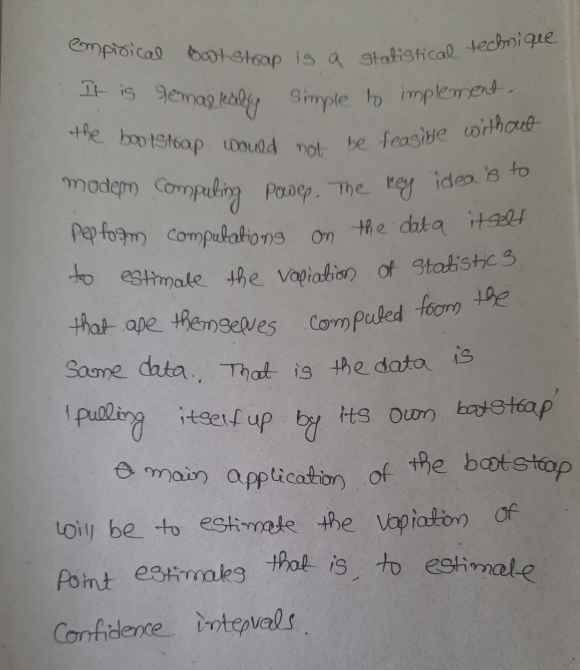 empirical bootstrap is a statistical technique
It is remarkably simple to implement.
the bootstrap would not be feasible without
modern computing power. The key idea is to
perform computations on the data itself
to estimate the variation of statistics
that are themselves computed from the
same data. That is the data is
'pulling itself up by its own bootstrap'
main application of the bootstrap
will be to estimate the variation of
Point estimates that is, to estimate
Confidence intervals.